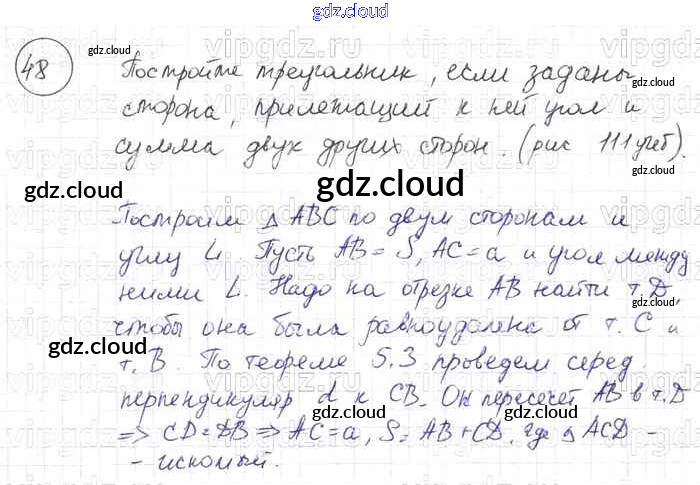 gdz.cloud
48
Постройте треугольник, если заданы
сторона, прилежащий к ней угол и
сумма двух других сторон. (рис 111 учеб).
Построим △ ABC по двум сторонам и
углу L. Пусть AB = S, AC = a и угол между
ними L. Надо на отрезке AB найти т. D,
чтобы она была равноудалена от т. C и
т. B. По теореме 5.3 проведем серед.
перпендикуляр d к CB. Он пересечет AB в т. D
=> CD = DB => AC = a, S = AB + CD, где △ ACD -
- искомый.
gdz.cloud
gdz.cloud
gdz.cloud
gdz.cloud
gdz.cloud
gdz.cloud
gdz.cloud
gdz.cloud
gdz.cloud